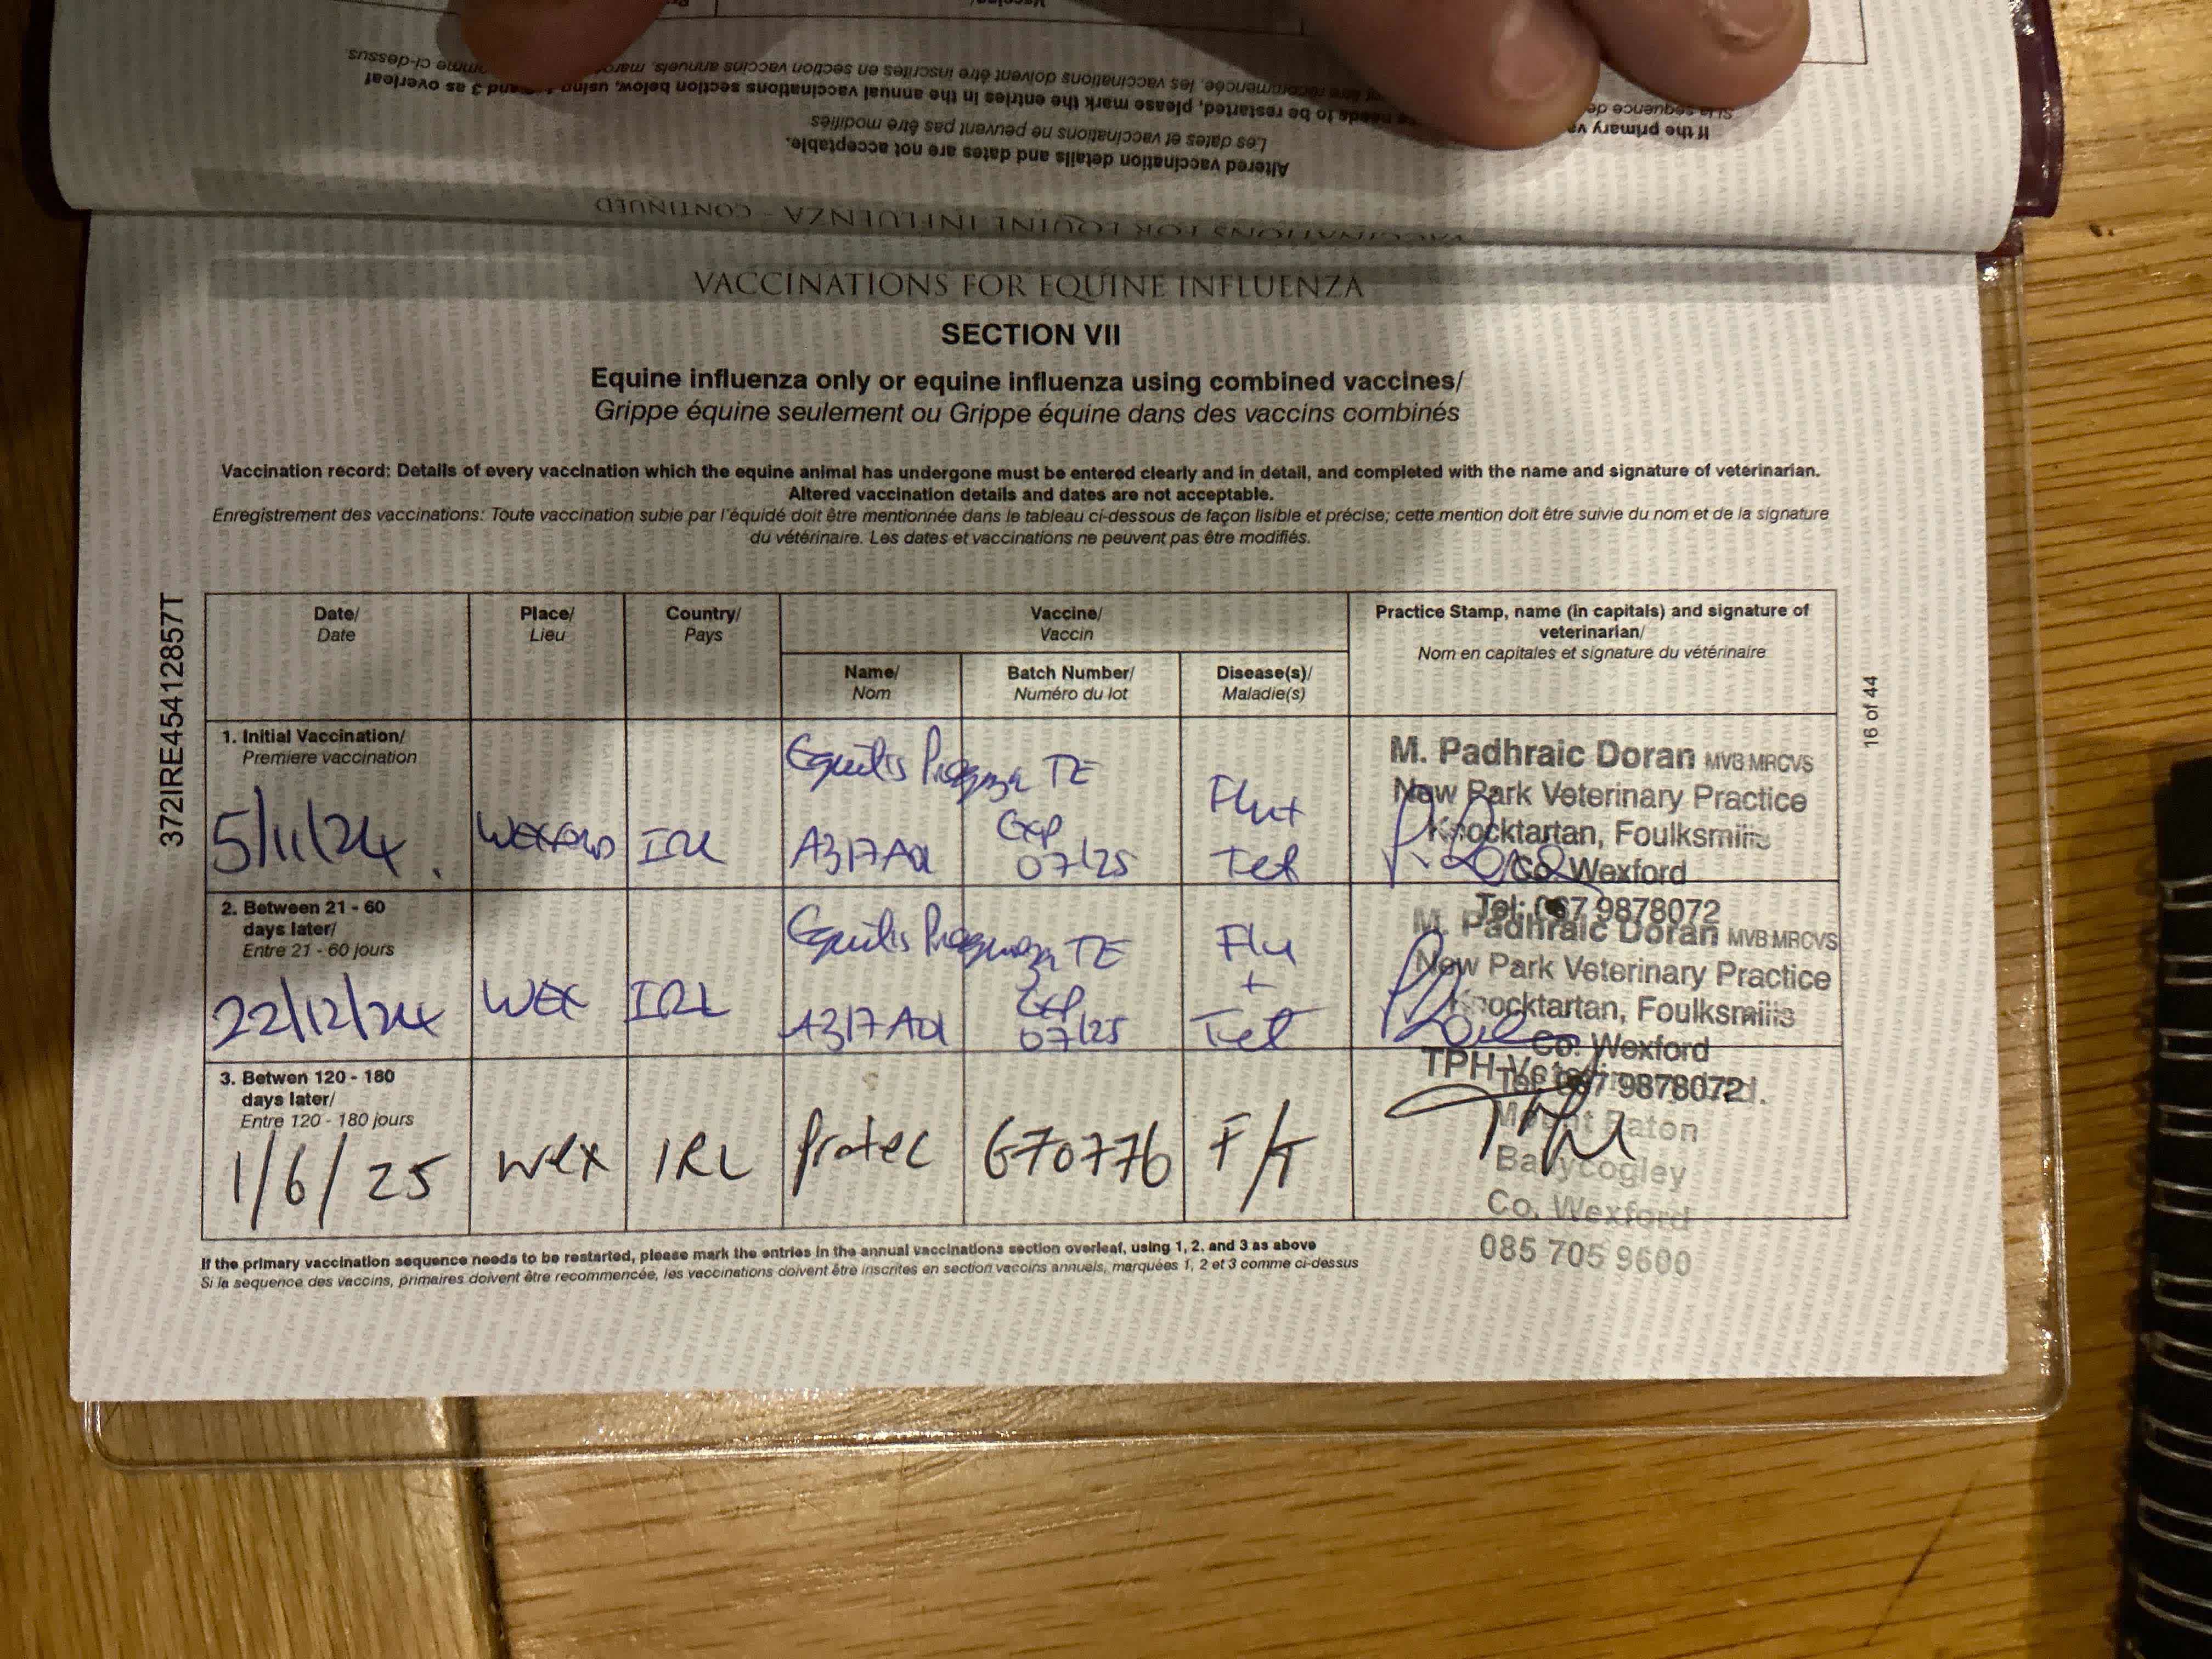 Altered vaccination details and dates are not acceptable.
Les dates et vaccinations ne peuvent pas être modifiés
If the primary needs to be restarted, please mark the entries in the annual vaccinations section below, using and 3 as overleaf
recommencée, les vaccinations doivent être inscrites en section vaccins annuels, comme ci-dessus
VACCINATIONS FOR EQUINE INFLUENZA - CONTINUED
VACCINATIONS FOR EQUINE INFLUENZA
SECTION VII
Equine influenza only or equine influenza using combined vaccines/
Grippe équine seulement ou Grippe équine dans des vaccins combinés
Vaccination record: Details of every vaccination which the equine animal has undergone must be entered clearly and in detail, and completed with the name and signature of veterinarian.
Altered vaccination details and dates are not acceptable.
Enregistrement des vaccinations: Toute vaccination subie par l'équidé doit être mentionnée dans le tableau ci-dessous de façon lisible et précise; cette mention doit être suivie du nom et de la signature
du vétérinaire. Les dates et vaccinations ne peuvent pas être modifiés.
372IRE45412857T
16 of 44
Date/
Date
Place/
Lieu
Country/
Pays
Vaccine/
Vaccin
Name/
Nom
Batch Number/
Numéro du lot
Disease(s)/
Maladie(s)
Practice Stamp, name (in capitals) and signature of
veterinarian/
Nom en capitales et signature du vétérinaire
1. Initial Vaccination/
Premiere vaccination
5/11/24.
Wexford
IRL
Equilis Prequenza TE
A317A01
Exp
07/25
Flu+
Tet
M. Padhraic Doran MVB MRCVS
New Park Veterinary Practice
Knocktartan, Foulksmills
Co. Wexford
Tel: 087 9878072
2. Between 21 - 60
days later/
Entre 21 - 60 jours
22/12/24
Wex
IRL
Equilis Prequenza TE
A317A01
Exp
07/25
Flu
+
Tet
M. Padhraic Doran MVB MRCVS
New Park Veterinary Practice
Knocktartan, Foulksmills
Co. Wexford
Tel: 087 9878072
3. Betwen 120 - 180
days later/
Entre 120 - 180 jours
1/6/25
Wex
IRL
Protec
G70776
F/T
TPH
Ballycogley
Co. Wexford
085 705 9600
If the primary vaccination sequence needs to be restarted, please mark the entries in the annual vaccinations section overleaf, using 1, 2, and 3 as above
Si la sequence des vaccins, primaires doivent être recommencée, les vaccinations doivent être inscrites en section vaccins annuels, marquées 1, 2 et 3 comme ci-dessus